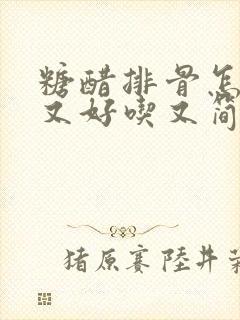 糖醋排骨怎
又好喫又简
猪原赛陸井